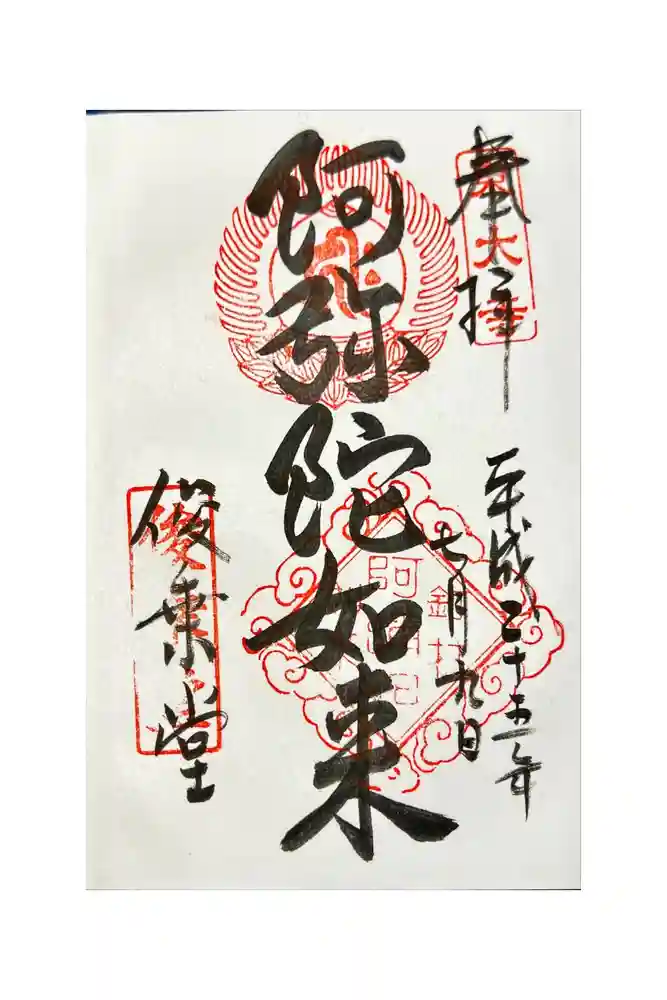 奉拝
平成二十五年
七月九日
阿弥陀如来
俊乗堂